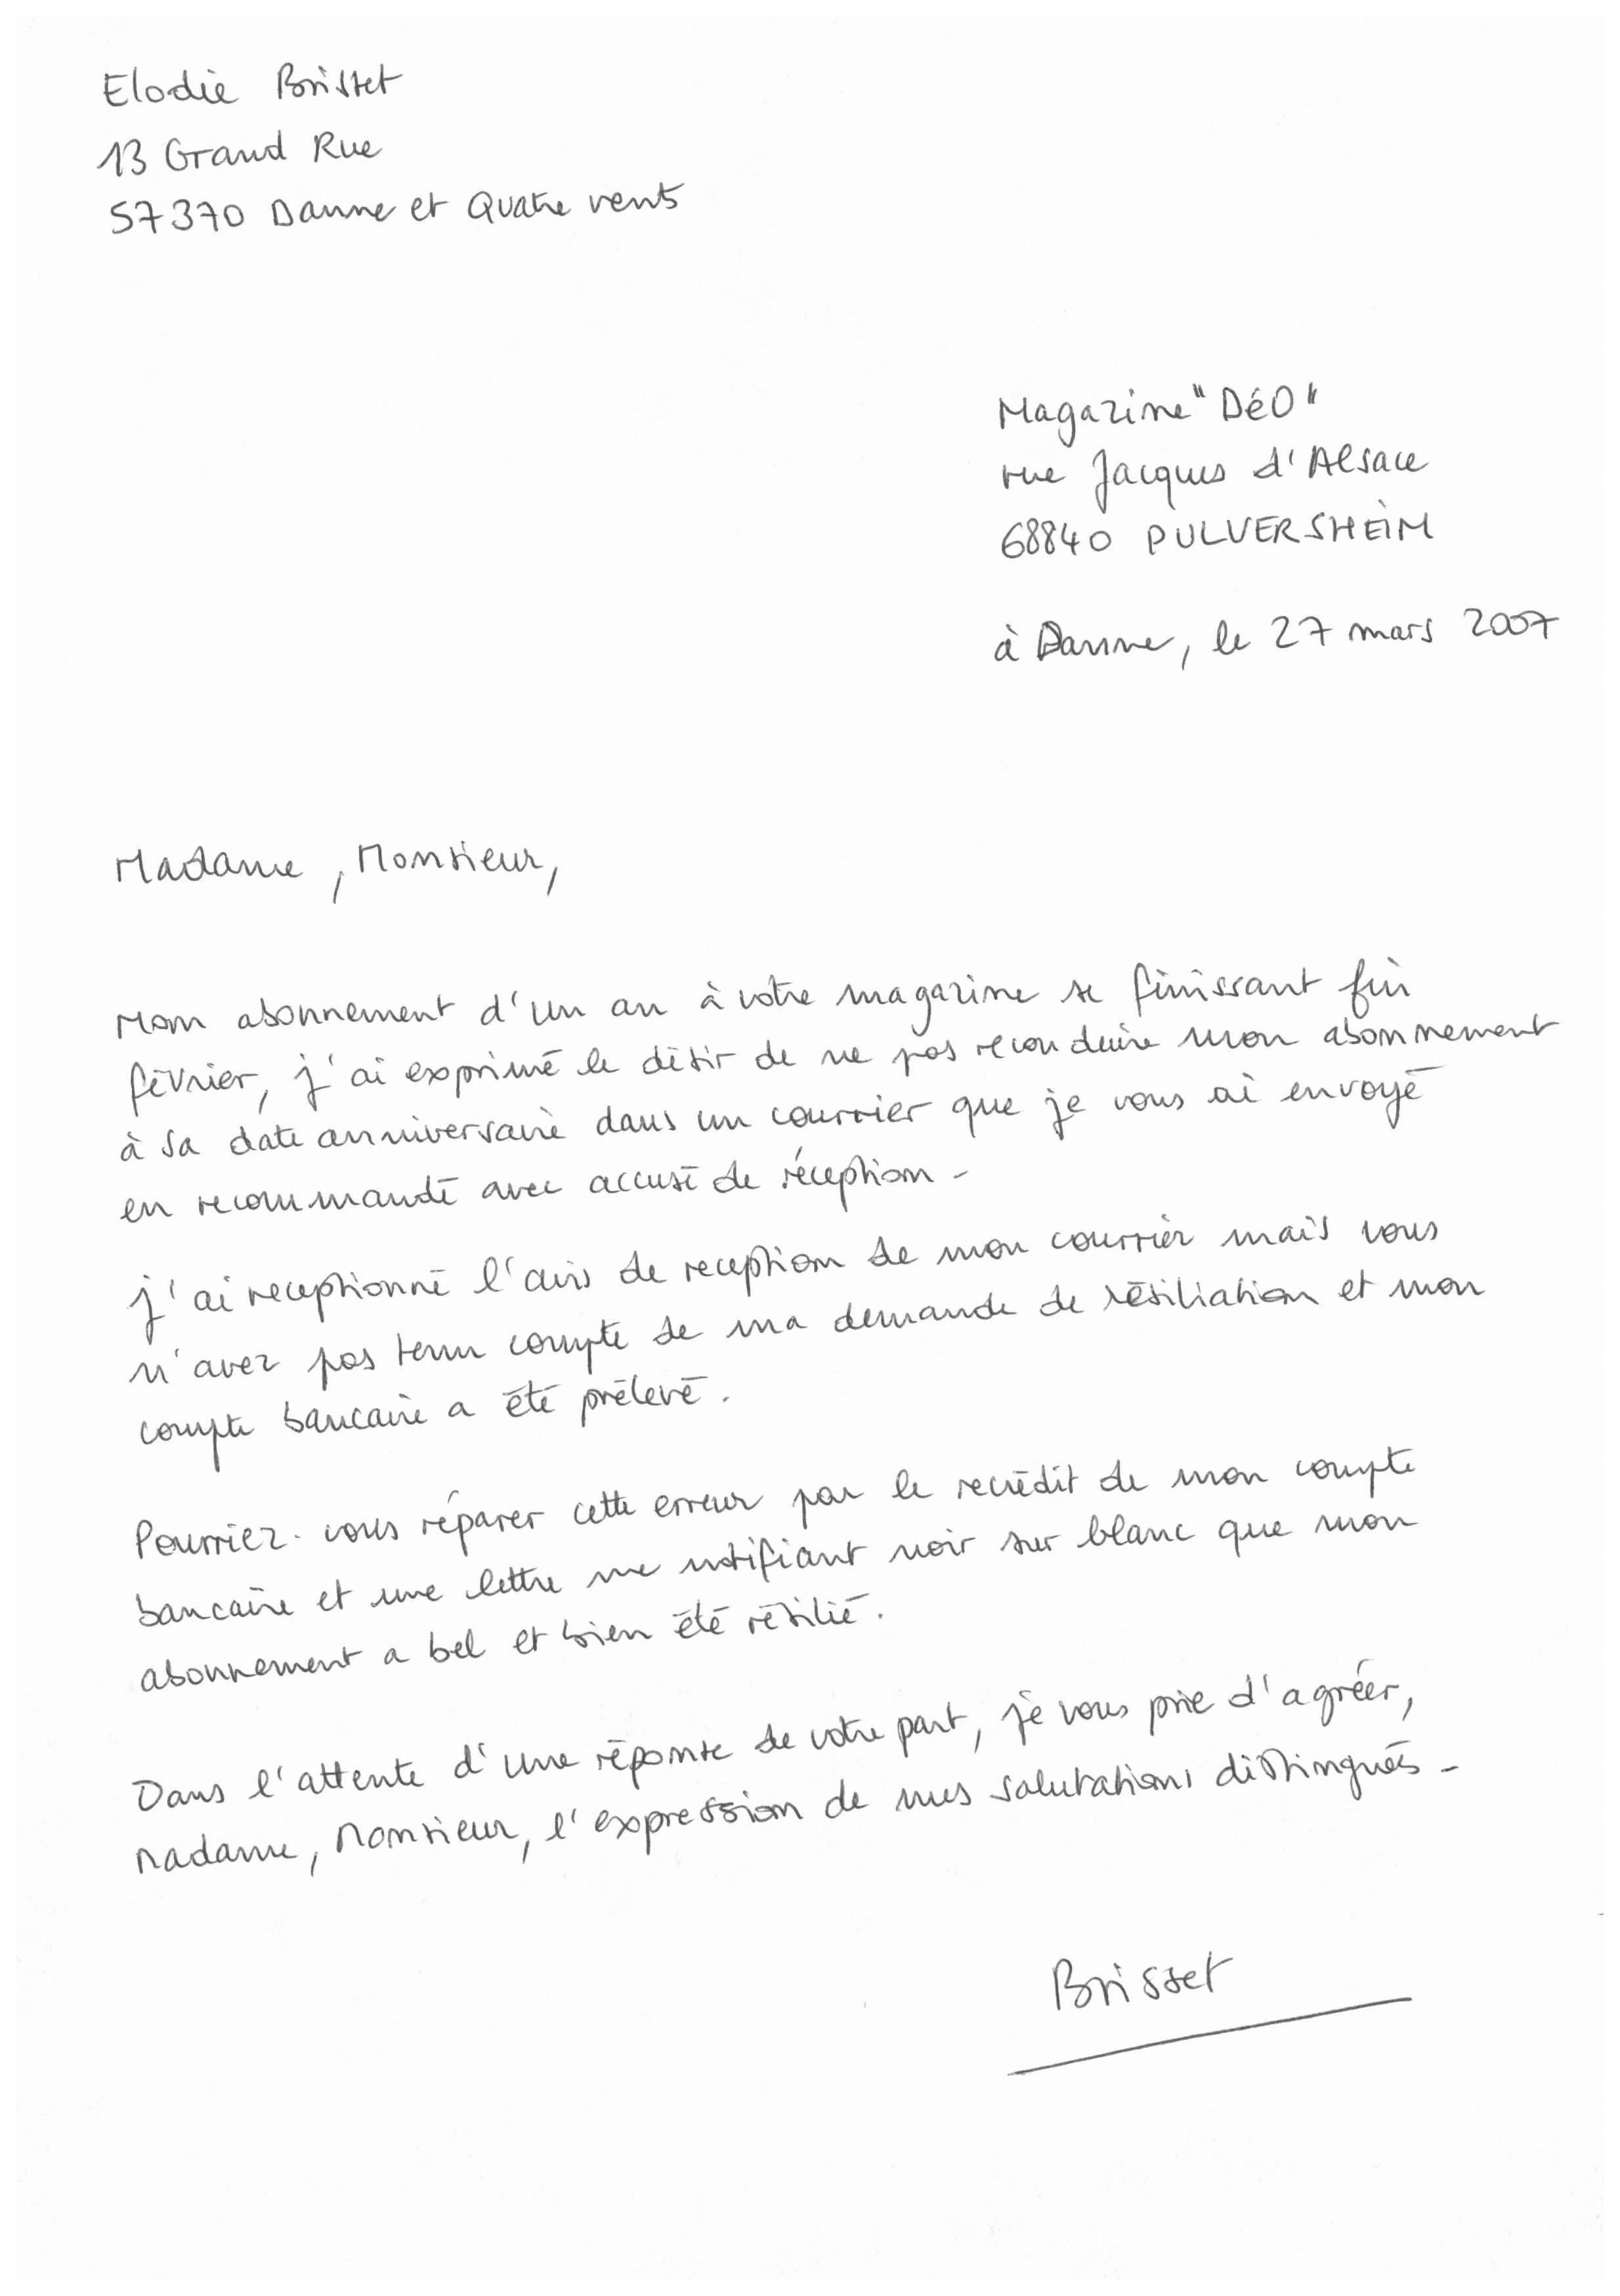 Elodie Brisset
13 Grand Rue
57370 Danne et Quatre vents
Magazine "DéO"
rue Jacques d'Alsace
68840 PULVERSHEIM
à Danne, le 27 mars 2007
Madame, Monsieur,
Mon abonnement d'un an à votre magazine se finissant fin
février, j'ai exprimé le désir de ne pas reconduire mon abonnement
à sa date anniversaire dans un courrier que je vous ai envoyé
en recommandé avec accusé de réception -
j'ai receptionné l'avis de reception de mon courrier mais vous
n'avez pas tenu compte de ma demande de résiliation et mon
compte bancaire a été prélevé.
Pourriez-vous réparer cette erreur par le recrédit de mon compte
bancaire et une lettre me notifiant noir sur blanc que mon
abonnement a bel et bien été résilié.
Dans l'attente d'une réponse de votre part, je vous prie d'agréer,
Madame, Monsieur, l'expression de mes salutations distinguées -
Brisset